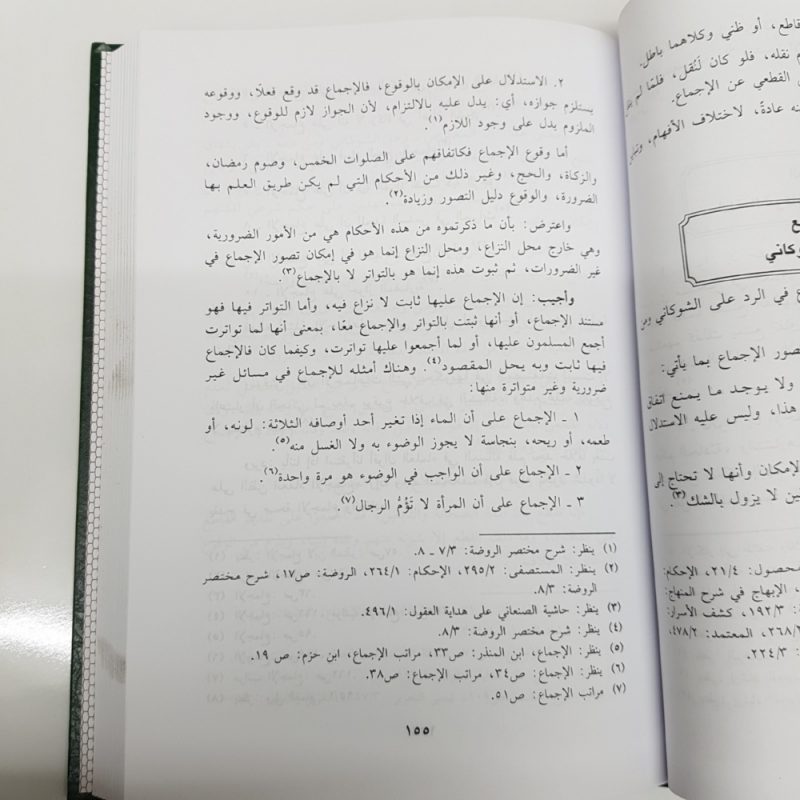 قاطع، أو ظني وكلاهما باطل.
م نقله، فلو كان لَنُقل، فلمّا لم
القطعي عن الإجماع.
نه عادةً، لاختلاف الأفهام،
ع
وكاني
ع في الرد على الشوكاني ومن
صور الإجماع بما يأتي:
ولا يوجد ما يمنع اتفاق
هذا، وليس عليه الاستدلال
لإمكان وأنها لا تحتاج إلى
ين لا يزول بالشك(٣).
محصول: ٢١/٤، الإحكام:
، الإبهاج في شرح المنهاج:
: ١٩٢/٣، كشف الأسرار:
٢٦٨/٢، المعتمد: ٤٧٨/٢،
: ٢٢٤/٣.
٢. الاستدلال على الإمكان بالوقوع، فالإجماع قد وقع فعلًا، ووقوعه
يستلزم جوازه، أي: يدل عليه بالالتزام، لأن الجواز لازم للوقوع، ووجود
الملزوم يدل على وجود اللازم(١).
أما وقوع الإجماع فكاتفاقهم على الصلوات الخمس، وصوم رمضان،
والزكاة، والحج، وغير ذلك من الأحكام التي لم يكن طريق العلم بها
الضرورة، والوقوع دليل التصور وزيادة(٢).
واعترض: بأن ما ذكرتموه من هذه الأحكام هي من الأمور الضرورية،
وهي خارج محل النزاع، ومحل النزاع إنما هو في إمكان تصور الإجماع في
غير الضرورات، ثم ثبوت هذه إنما هو بالتواتر لا بالإجماع(٣).
وأجيب: إن الإجماع عليها ثابت لا نزاع فيه، وأما التواتر فيها فهو
مستند الإجماع، أو أنها ثبتت بالتواتر والإجماع معًا، بمعنى أنها لما تواترت
أجمع المسلمون عليها، أو لما أجمعوا عليها تواترت، وكيفما كان فالإجماع
فيها ثابت وبه يحل المقصود(٤). وهناك أمثله للإجماع في مسائل غير
ضرورية وغير متواترة منها:
١ ـ الإجماع على أن الماء إذا تغير أحد أوصافه الثلاثة: لونه، أو
طعمه، أو ريحه، بنجاسة لا يجوز الوضوء به ولا الغسل منه(٥).
٢ ـ الإجماع على أن الواجب في الوضوء هو مرة واحدة(٦).
٣ ـ الإجماع على أن المرأة لا تَؤُمُّ الرجال(٧)
(١) ينظر: شرح مختصر الروضة: ٧/٣ ـ ٨.
(٢) ينظر: المستصفى: ٢٩٥/٢، الإحكام: ٢٦٤/١، الروضة: ص١٧، شرح مختصر
الروضة: ٨/٣.
(٣) ينظر: حاشية الصنعاني على هداية العقول: ٤٩٦/١.
(٤) ينظر: شرح مختصر الروضة: ٨/٣.
(٥) ينظر: الإجماع، ابن المنذر: ص٣٣، مراتب الإجماع، ابن حزم: ص ١٩.
(٦) ينظر: الإجماع: ص٣٤، مراتب الإجماع: ص٣٨.
(٧) مراتب الإجماع: ص٥١.
١٥٥